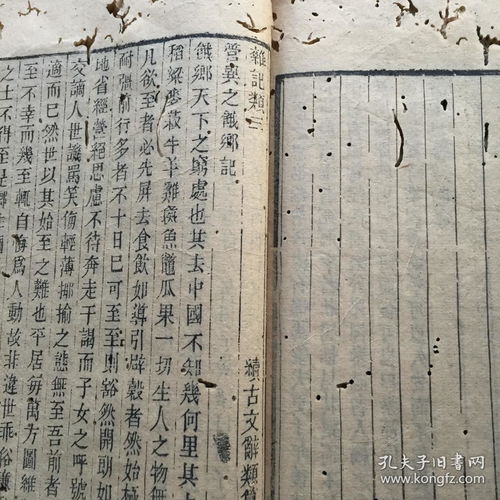 雜記類三
續古文辭類
管異之餓鄉記
餓鄉天下之窮處也其去中國不知幾何里其土
稻粱麥菽牛羊雞彘魚鼈瓜果一切生人之物無
凡欲至者必先屏去食飲如導引辟穀者然始極
耐強前行多者不十日已可至至則豁然開朗如
地省經營絕思慮不待奔走干謁而子女之呼號
交謫人世譏罵笑侮輕薄揶揄之態無至吾前者
適而已然世以其始至之難也平居每萬方圖維
至不幸而幾至輒自悔為人動故非違世乖俗
之士不得至是鄉
孔夫子旧书网
www.kongfz.com